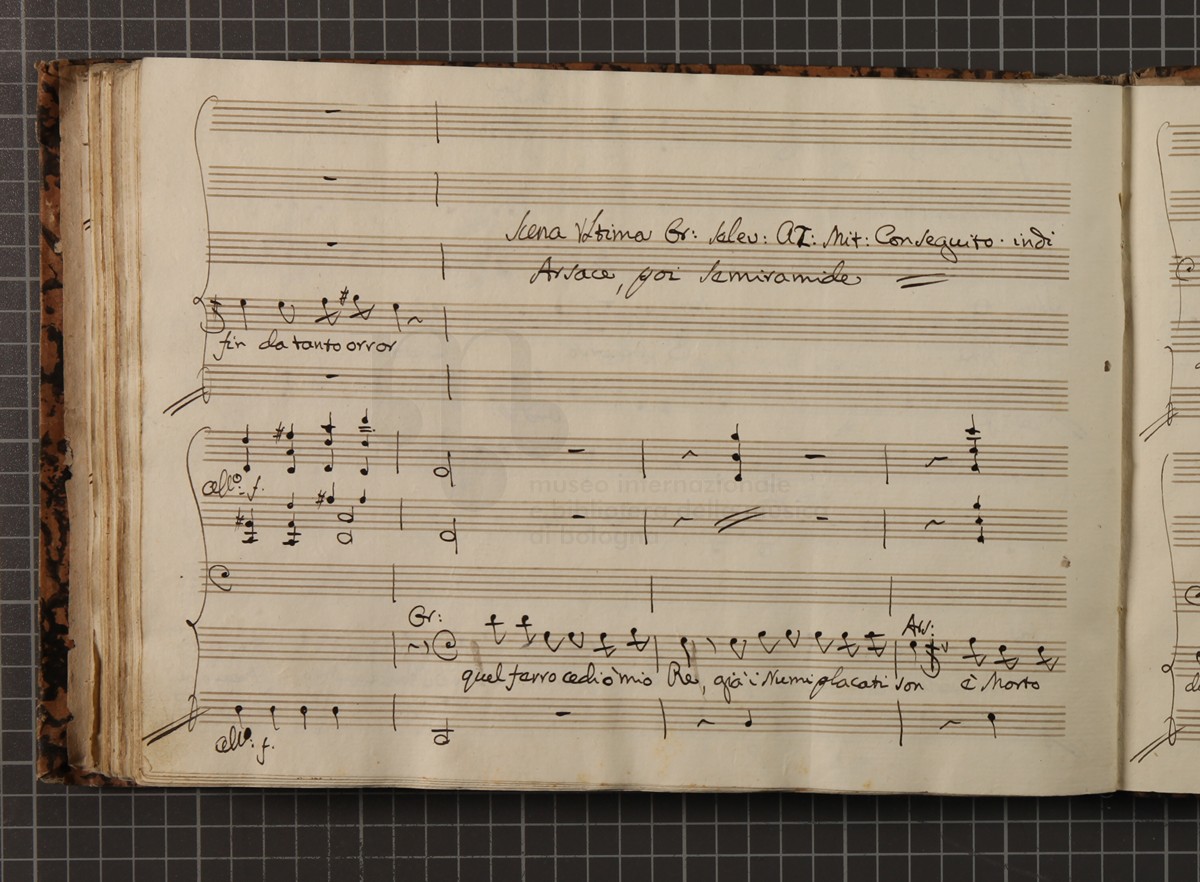 Scena Ultima Or: Seleu: AZ: Mit: Con seguito. indi
Arsace, poi Semiramide
fin da tanto orror
All.o: f.
Or:
Ars:
quel ferro cedi ò mio Re, già i Numi placati son è Morto
All.o: f.
museo internazionale
e biblioteca della musica
di bologna